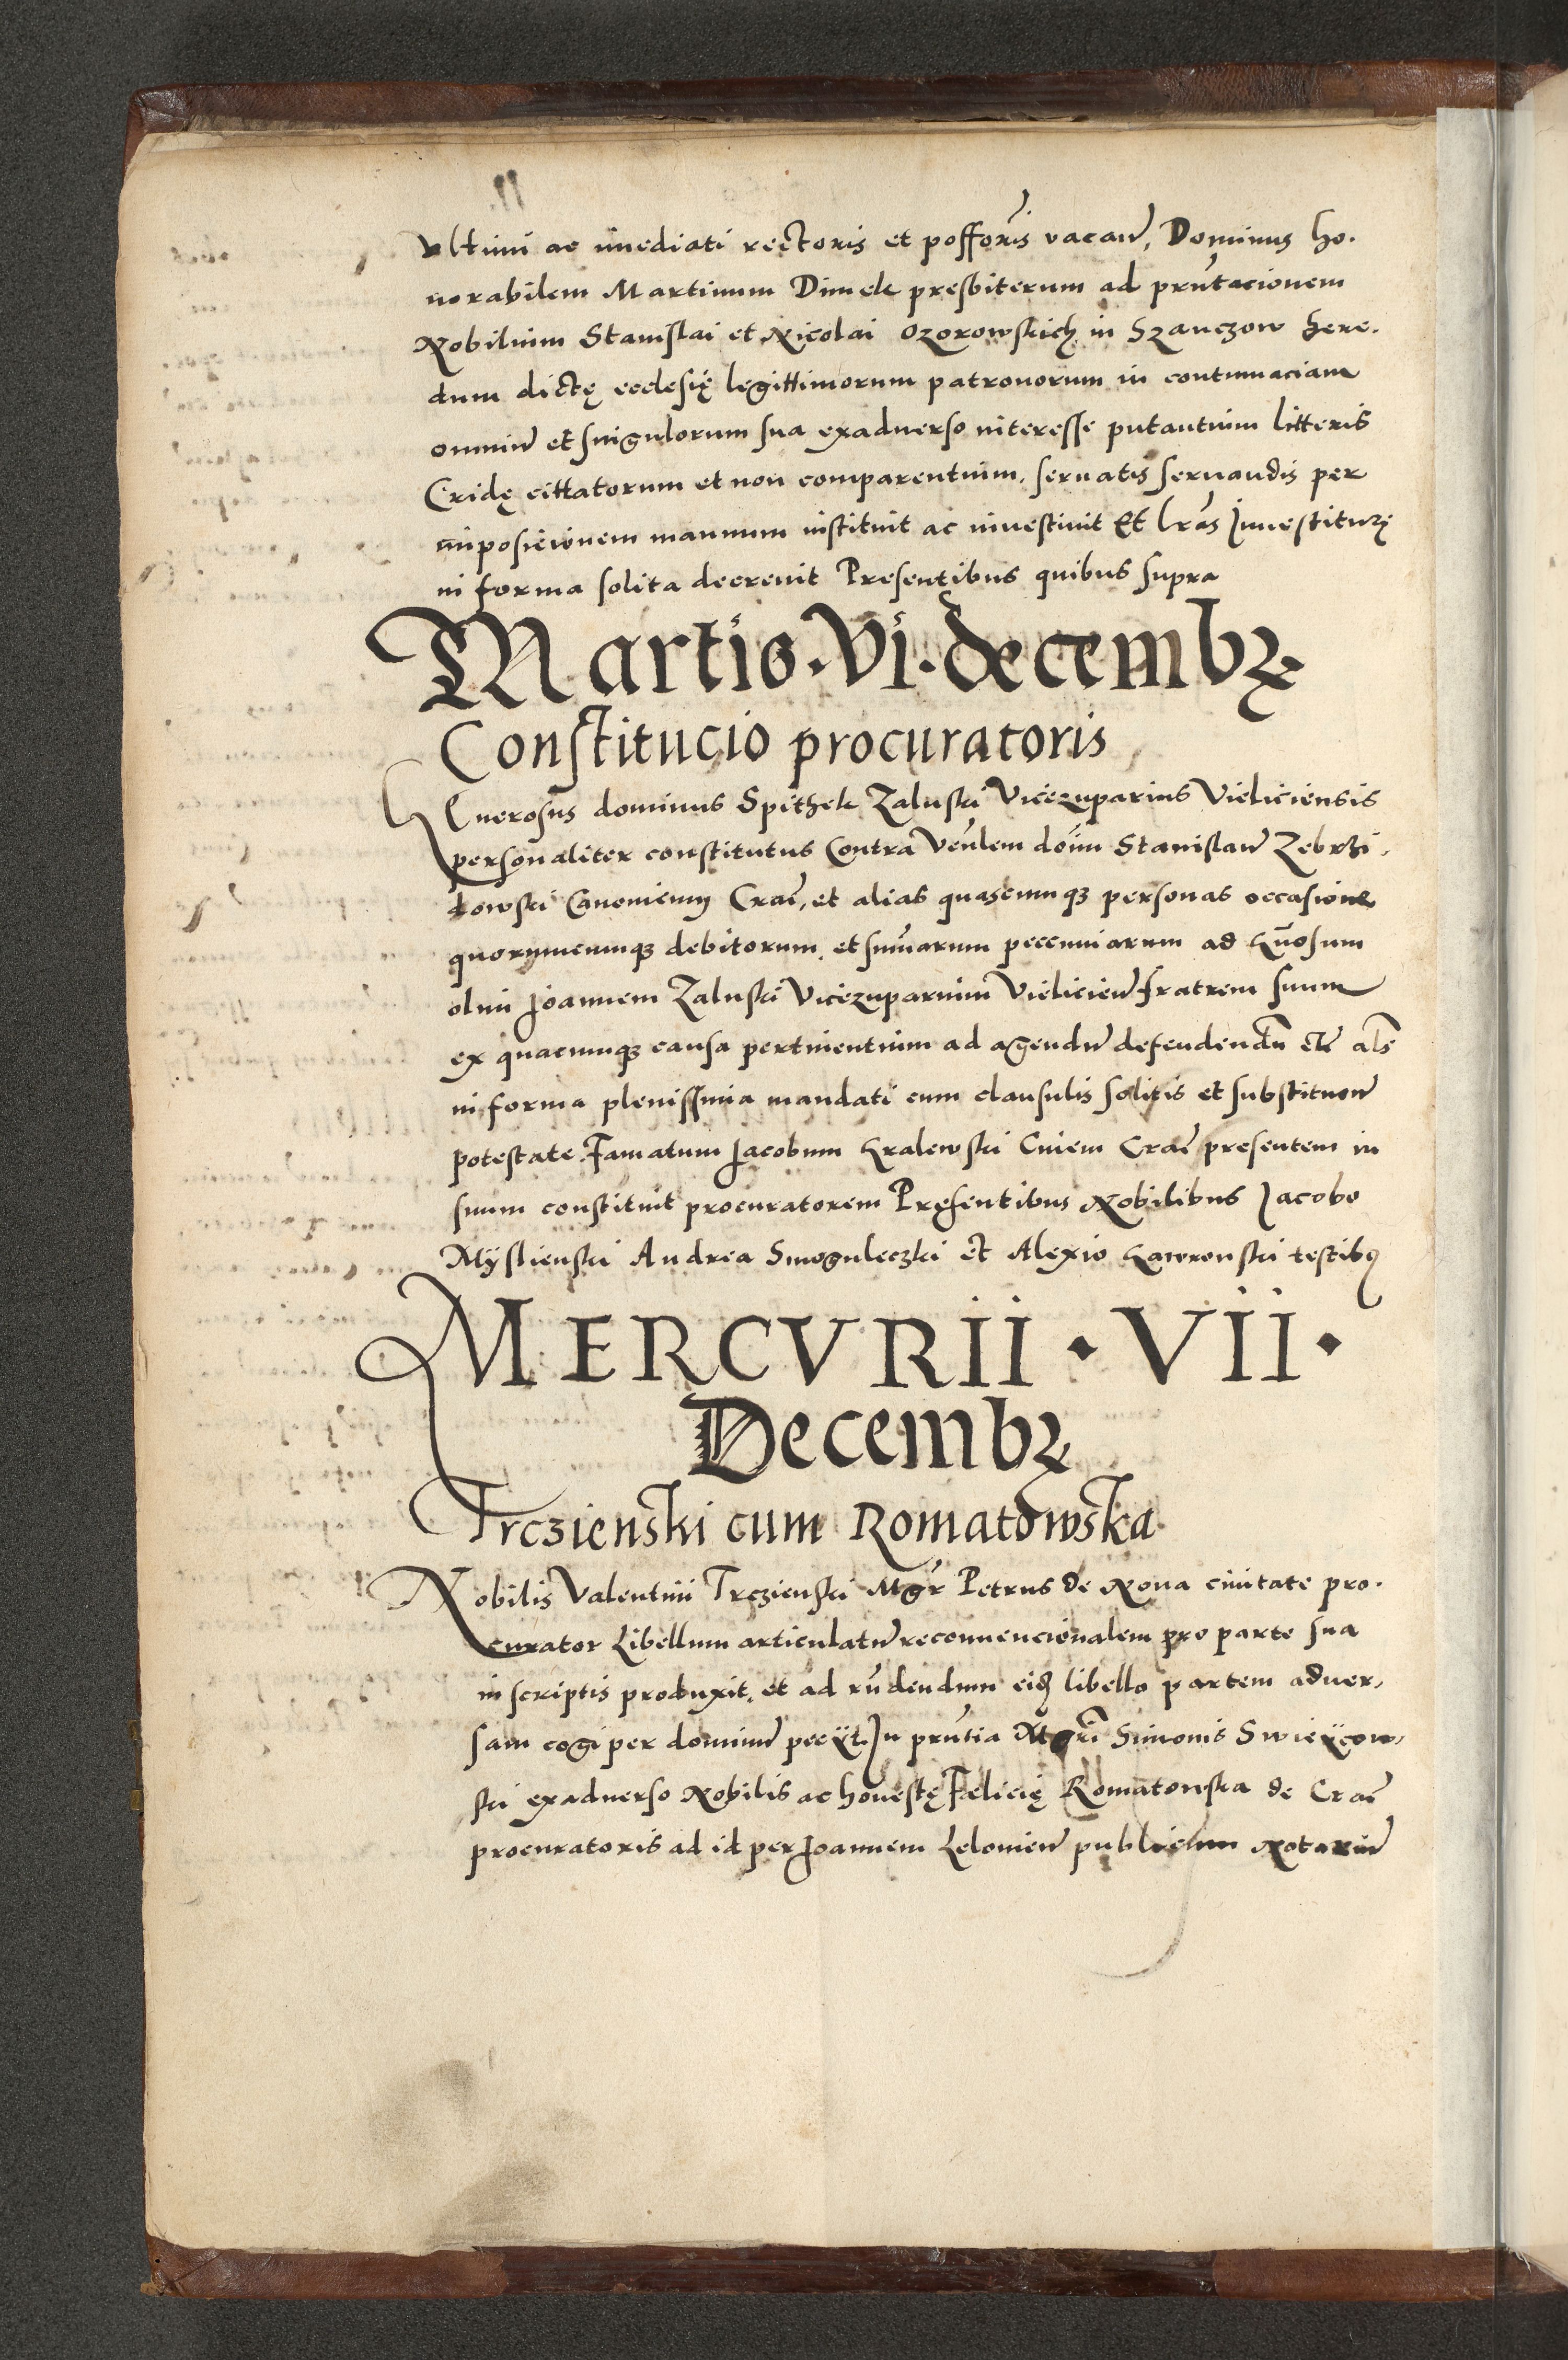 Vltimi ac imediati rectoris et possoris vacan̄, Dominus ho.
norabilem Martinum Dimek presbiterum ad prn̄tacionem
Nobilium Stanislai et Nicolai Ozorowskich in Szanczow here.
dum dictę ecclesię legittimorum patronorum in contumaciam
omniū et singulorum sua exaduerso interesse putantium litteris
Cridę cittatorum et non comparentium, seruatis seruandis per
imposicionem manuum instituit ac inuestiuit Et lr̄as Inuestiturę
in forma solita decreuit Presentibus quibus supra
Martis · Vi · decembꝝ
Constitucio procuratoris
Generosus dominus Spithek Zaluski Vicezuparius Vieliciensis
personaliter constitutus Contra Ven̄lem don̄m Stanislaū Zebrzi,
dowski Canonicum Crac̄, et alias quascumqꝫ personas occasione
quorumcumqꝫ debitorum, et sum̄arum peccuniarum ad Gn̄osum
olim Joannem Zaluski Vicezuparium Vielicien̄ fratrem suum
ex quacumqꝫ causa pertinentium ad agendū defendendū etc̄ al̄s
in forma plenissima mandati cum clausulis solitis et substituen̄
potestate. Famatum Jacobum Gralewski Ciuem Crac̄ presentem in
suum constituit procuratorem Pręsentibus Nobilibus Jacobo
Mÿslienski Andrea Smoguleczki et Alexio Gawronski testibꝰ
MERCVRII · VII ·
Decembꝝ
Trczienski cum Romatowska
Nobilis Valentini Trczienski Mgr̄ Petrus de Noua ciuitate pro.
curator Libellum articulatū reconuencionalem pro parte sua
in scriptis produxit, et ad rn̄dendum eidꝫ libello partem aduer,
sam cogi per dominū peciÿt. In prn̄tia Mgr̄i Simonis Swieÿcow,
ski exaduerso Nobilis ac honestę Fęlicię Romatowska de Crac̄
procuratoris ad id per Joannem Lelonien̄ publicum Notariū